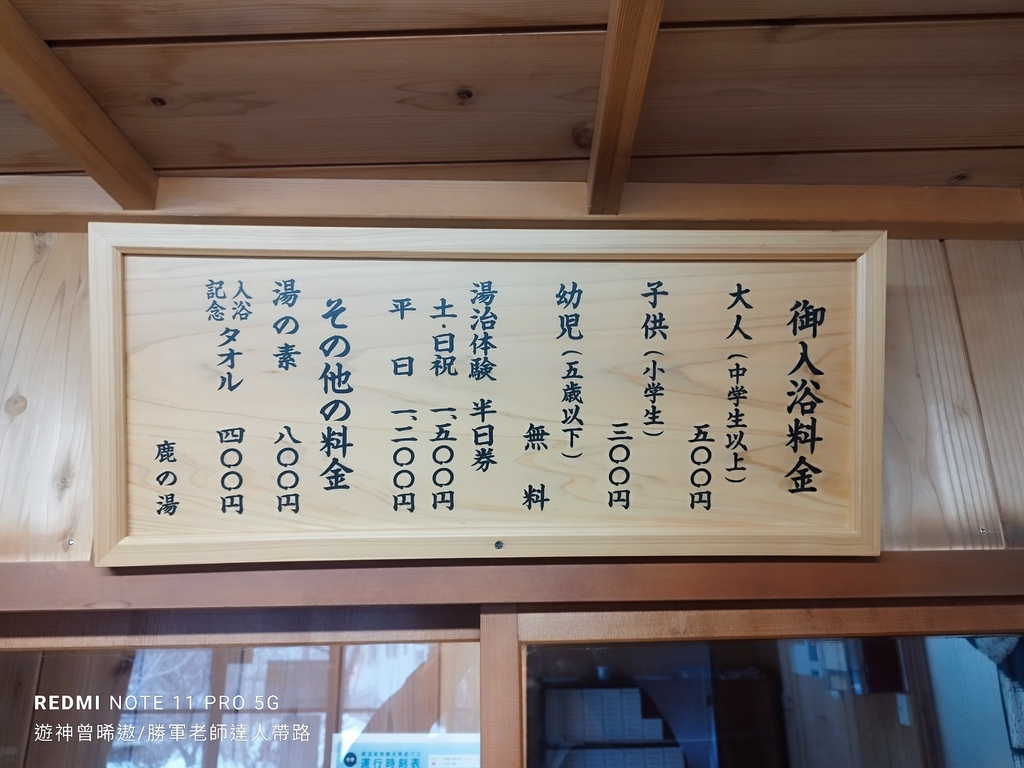 御入浴料金
大人（中学生以上）
五〇〇円
子供（小学生）
三〇〇円
幼児（五歳以下）
無料
湯治体験 半日券
土・日祝 一、五〇〇円
平日 一、二〇〇円
その他の料金
湯の素 八〇〇円
入浴記念タオル 四〇〇円
鹿の湯
運行時刻表
REDMI NOTE 11 PRO 5G
遊神曾晞遨/勝軍老師達人帶路